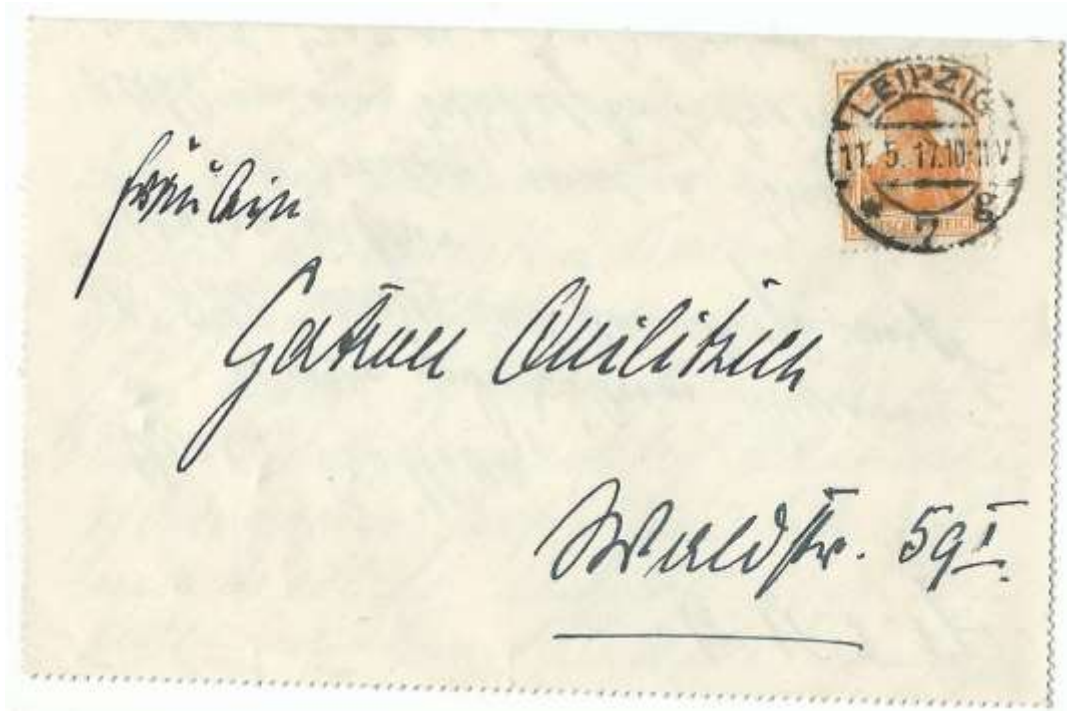 LEIPZIG
11. 5. 17. 10-11 V
* 7 g
Fräulein
Quilitzsch
Waldstr. 59 I.